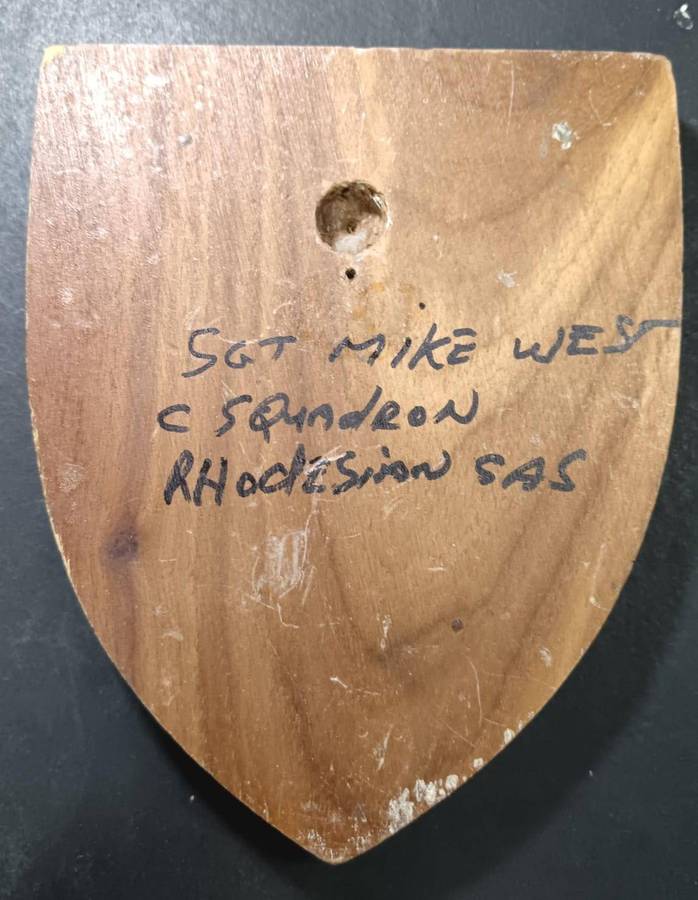 SGT MIKE WEST
C SQUADRON
RHODESIAN SAS